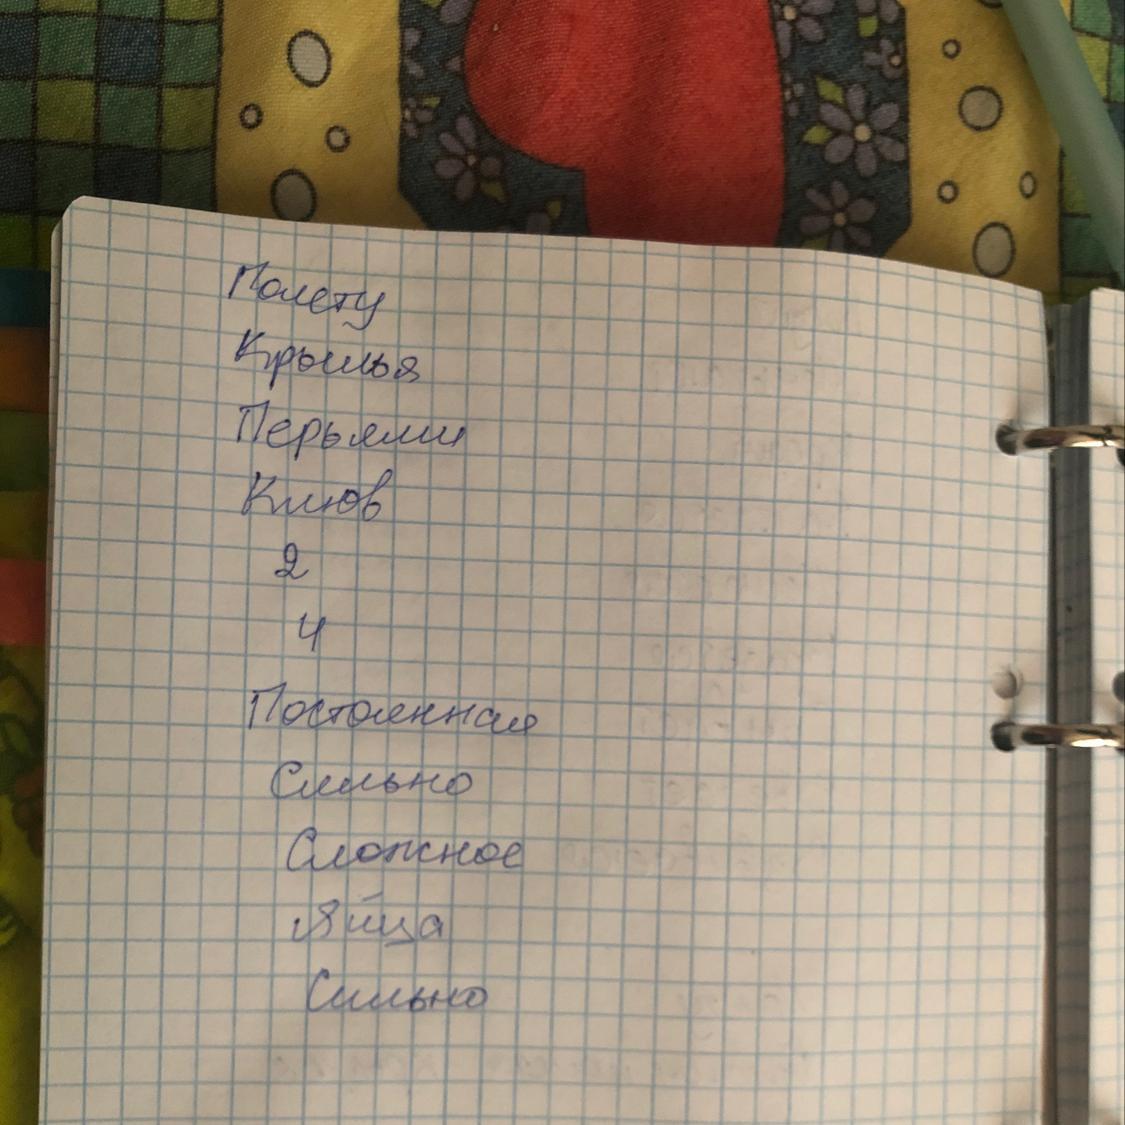 Полету
Крылья
Перьями
Клюв
2
4
Постоянная
Сильно
Сложное
Яйца
Сильно